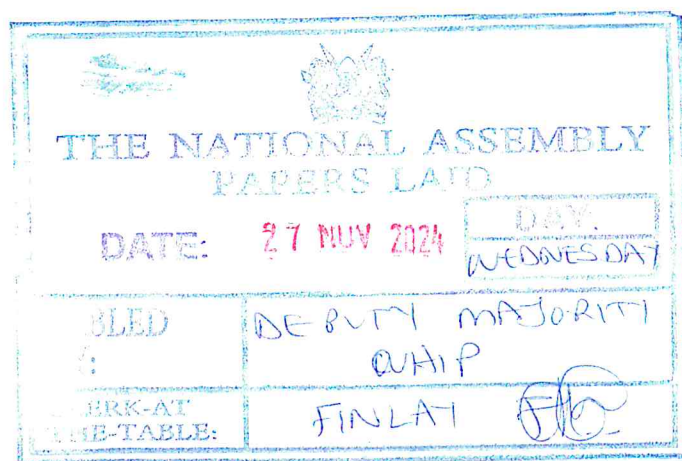 THE NATIONAL ASSEMBLY
PAPERS LAID
DATE: 27 NOV 2024
DAY:
WEDNESDAY
BLED
DEPUTY MAJORITY
WHIP
:
ERK-AT
HE-TABLE:
FINLAY